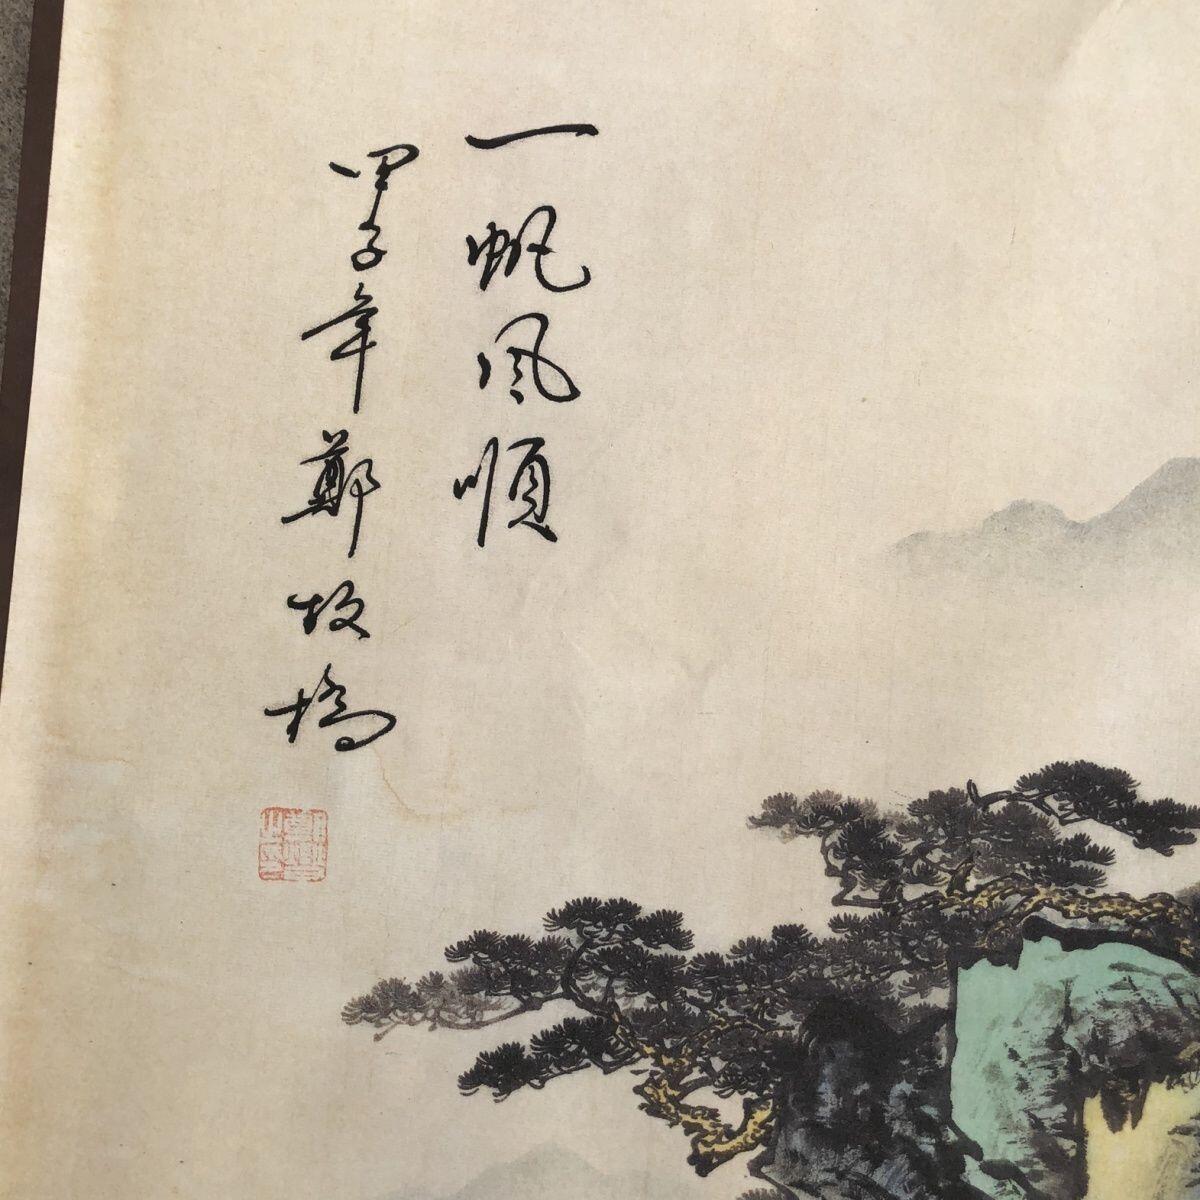 一帆风順
甲子年鄭板橋